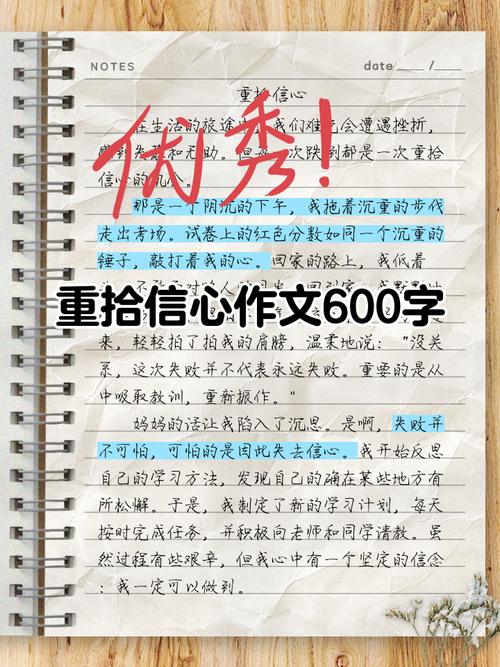 NOTES
date ___ / ___
重拾信心
在生活的旅途中，我们难免会遭遇挫折，
感到失落和无助。但每一次跌倒都是一次重拾
信心的机会。
优秀！
那是一个阴沉的下午，我拖着沉重的步伐
走出考场。试卷上的红色分数如同一个沉重的
锤子，敲打着我的心。回家的路上，我低着
重拾信心作文600字
来，轻轻拍了拍我的肩膀，温柔地说：“没关
系，这次失败并不代表永远失败。重要的是从
中吸取教训，重新振作。”
妈妈的话让我陷入了沉思。是啊，失败并
不可怕，可怕的是因此失去信心。我开始反思
自己的学习方法，发现自己的确在某些地方有
所松懈。于是，我制定了新的学习计划，每天
按时完成任务，并积极向老师和同学请教。虽
然过程有些艰辛，但我心中有一个坚定的信念
：我一定可以做到。